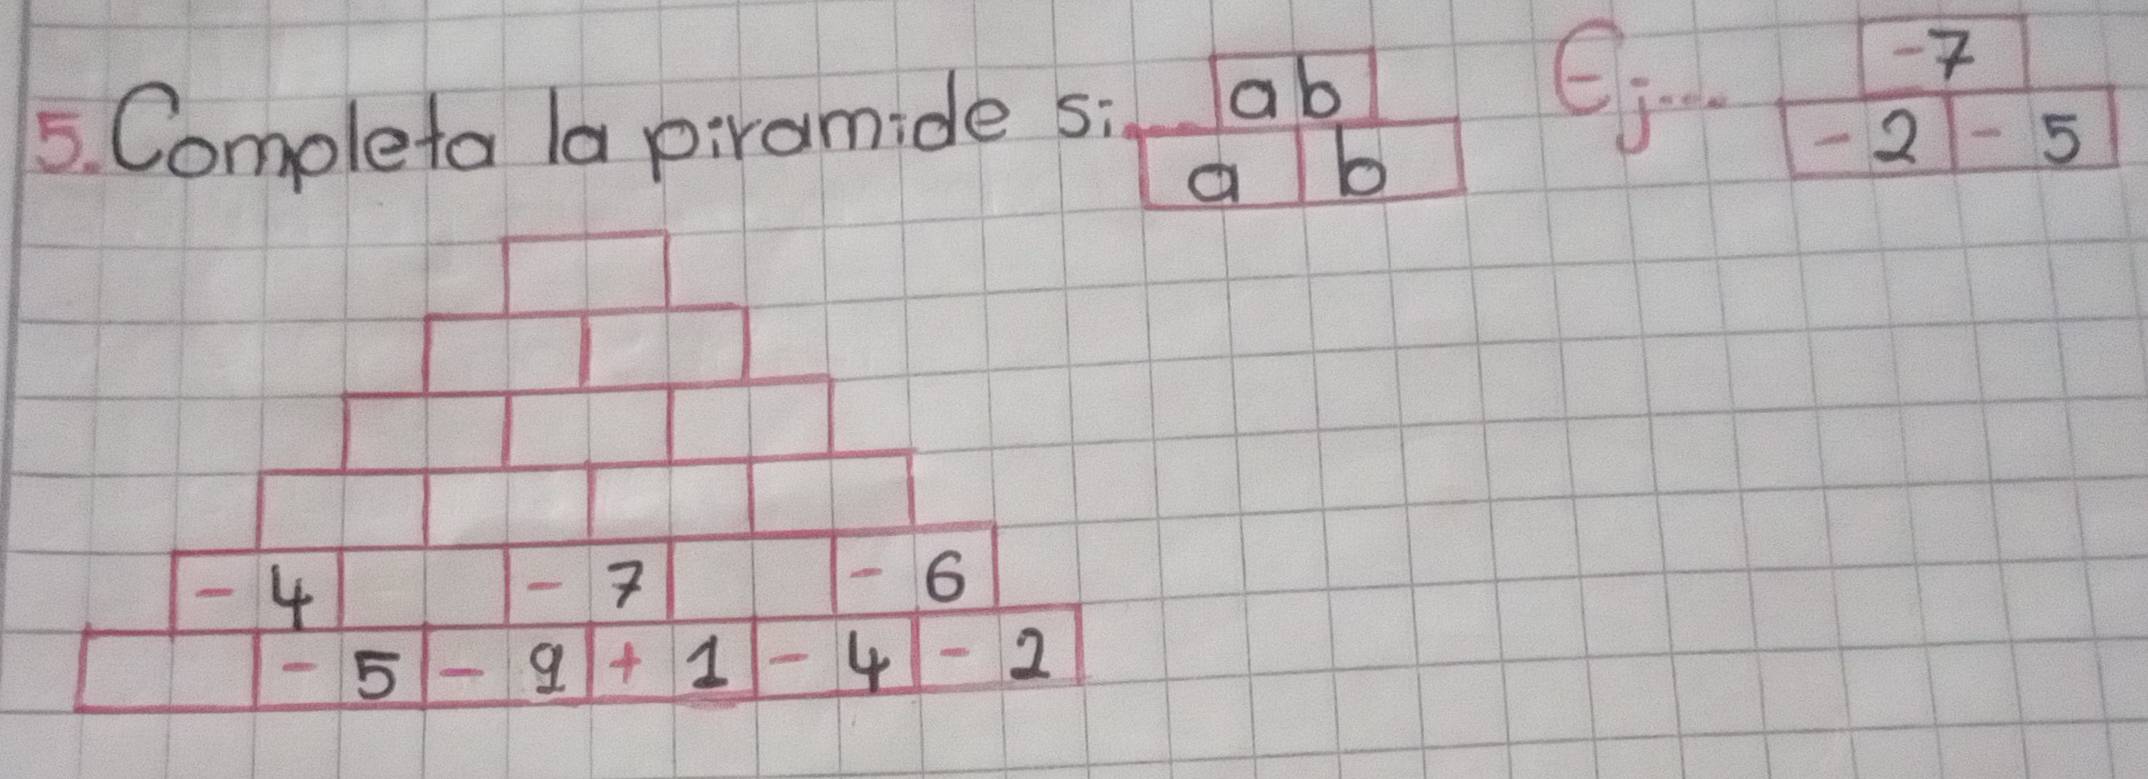 5. Completa la piramide si ab Ej... -7
a b - 2 - 5
- 4 - 7 - 6
- 5 - 9 + 1 - 4 - 2